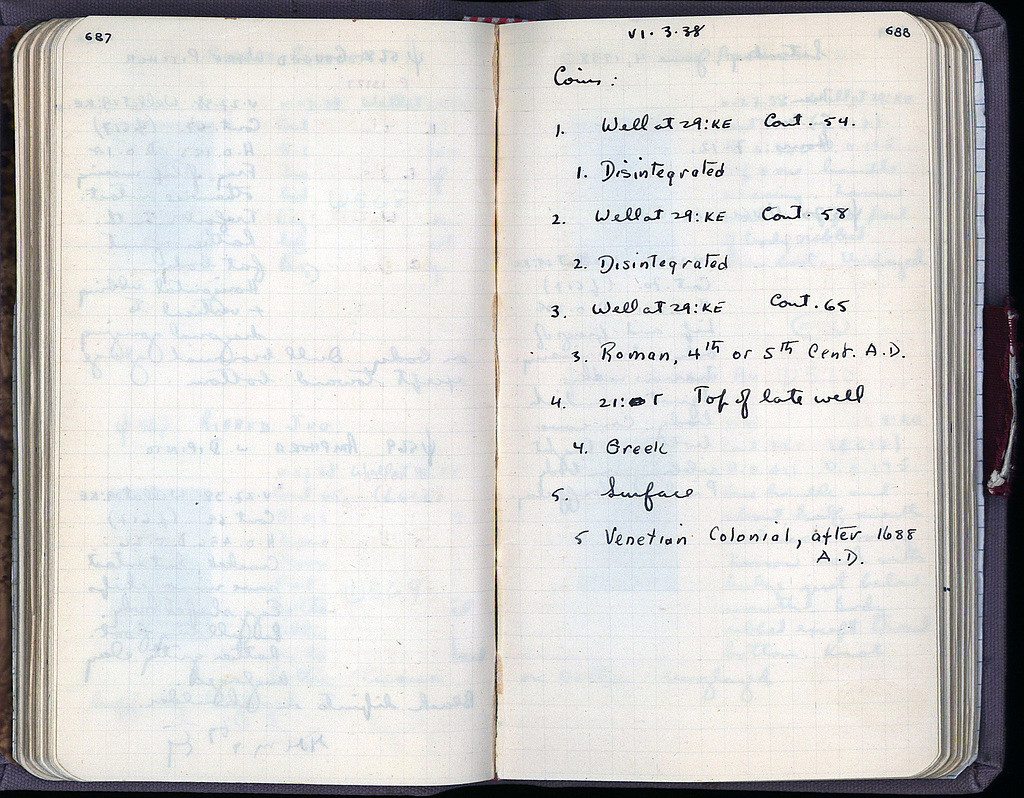 687
VI. 3. 38
688
Coins:
1. Well at 29:KE Cont. 54.
1. Disintegrated
2. Well at 29:KE Cont. 58
2. Disintegrated
3. Well at 29:KE Cont. 65
3. Roman, 4th or 5th Cent. A.D.
4. 21: Γ Top of late well
4. Greek
5. Surface
5 Venetian Colonial, after 1688
A.D.